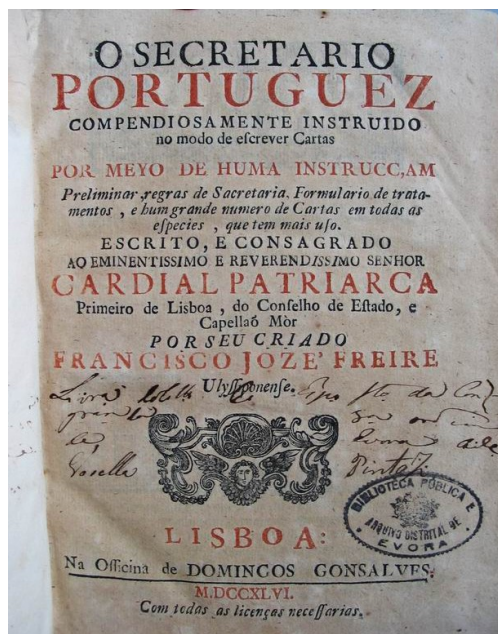 O SECRETARIO
PORTUGUEZ
COMPENDIOSAMENTE INSTRUIDO
no modo de eſcrever Cartas
POR MEYO DE HUMA INSTRUCC,AM
Preliminar, regras de Sacretaria, Formulario de trata-
mentos, e hum grande numero de Cartas em todas as
eſpecies, que tem mais uſo.
ESCRITO, E CONSAGRADO
AO EMINENTISSIMO E REVERENDISSIMO SENHOR
CARDIAL PATRIARCA
Primeiro de Lisboa, do Conſelho de Eſtado, e
Capellaõ Mòr
POR SEU CRIADO
FRANCISCO JOZE' FREIRE
Ulyſſiponenſe.
BIBLIOTECA PÚBLICA E
ARQUIVO DISTRITAL DE
EVORA
LISBOA:
Na Officina de DOMINGOS GONSALVES.
M.DCCXLVI.
Com todas as licenças neceſſarias.